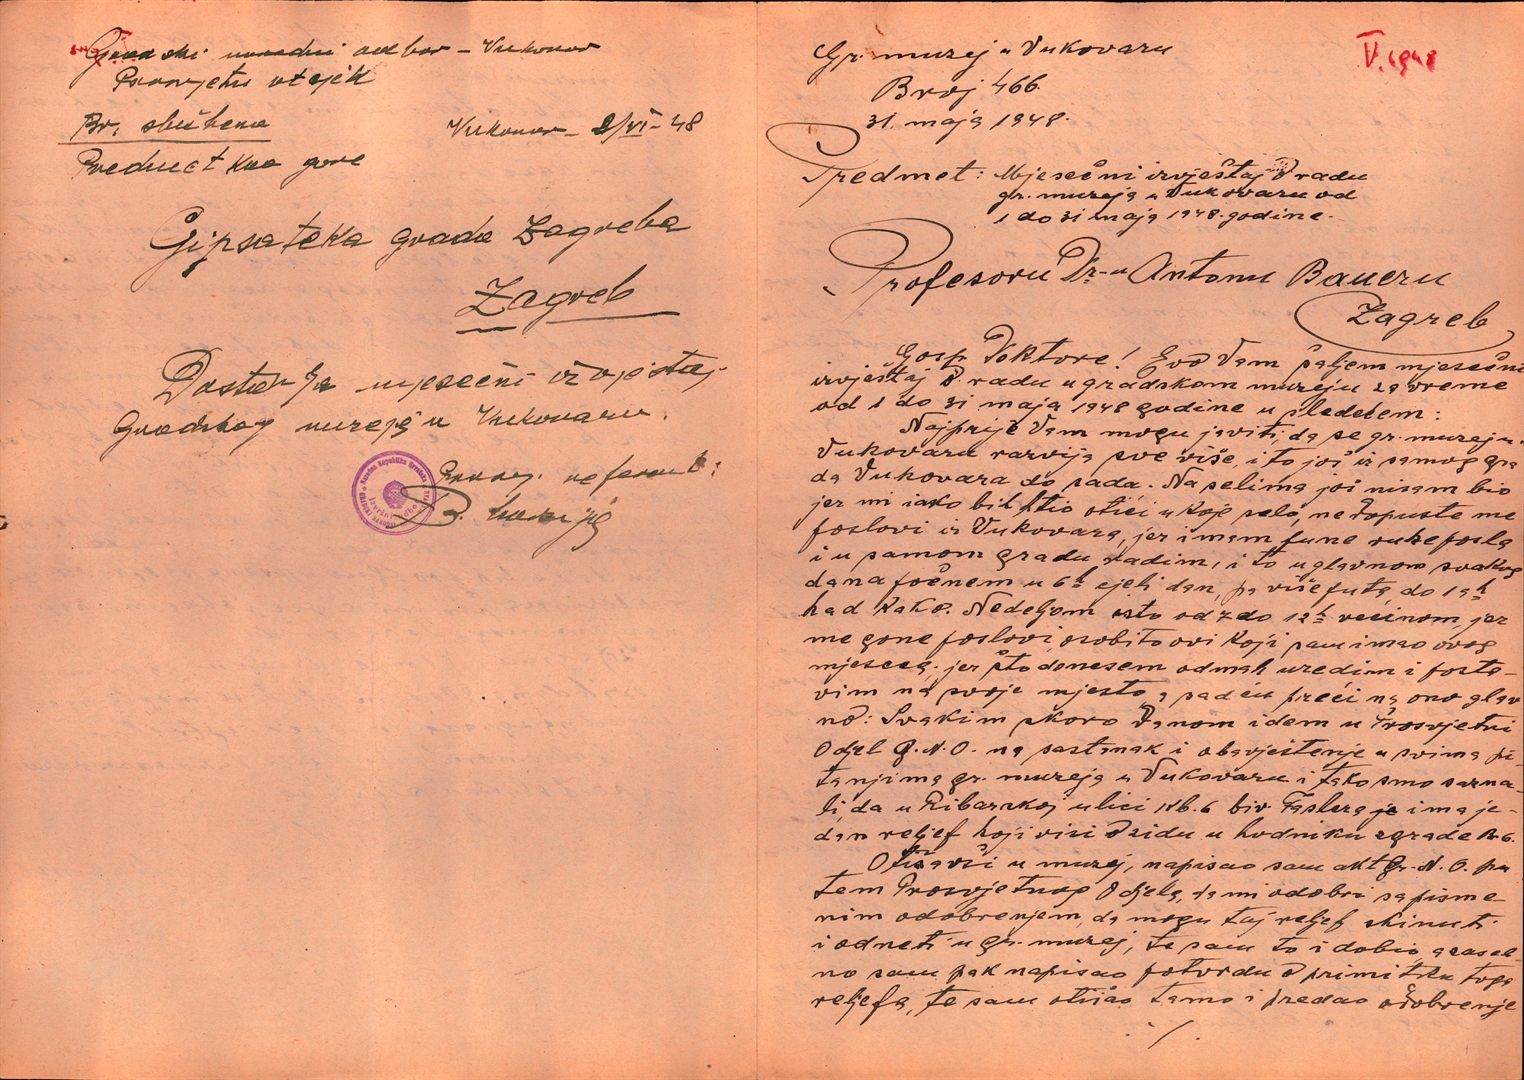 Gradski narodni odbor – Vukovar
Prosvjetni otsjek
Br. službeno
Vukovar – 2/VI – 48
Predmet kao gore
Gipsoteka grada Zagreba
Zagreb
Dostavlja mjesečni izvještaj
Gradskog muzeja u Vukovaru.
Prosvj. referent:
V. 1948
Gr. muzej u Vukovaru
Broj 466.
31. maja 1948.
Predmet: Mjesečni izvještaj o radu
gr. muzeja u Vukovaru od
1 do 31 maja 1948. godine.
Profesoru Dr-u Antonu Baueru
Zagreb
Gosp. Doktore! Evo Vam šaljem mjesečni
izvještaj o radu u gradskom muzeju za vreme
od 1 do 31 maja 1948 godine u sledećem:
Najprije Vam mogu javiti, da se gr. muzej u
Vukovaru razvija sve više, i to još iz samog gra
da Vukovara do sada. Na selima još nisam bio
jer mi iako bi htio otići u koje selo, ne dopuste me
poslovi iz Vukovara, jer imam pune ruke posla
i u samom gradu radim, i to uglavnom svakog
dana počnem u 6h cjeli dan, pa više puta do 19h
kad kako. Nedeljom isto od 7 do 12h većinom jer
me gone poslovi, osobito ovi koji sam imao ovog
mjeseca. jer što donesem odmah uredim i posta-
vim na svoje mjesto, a sad ću preći na ono glav
no: Svakim skoro danom idem u Prosvjetni
Odjel G.N.O. na sastanak i obavještenje u svima pi-
tanjima gr. muzeja u Vukovaru i tako smo sazna-
li, da u Ribarskoj ulici kb. 6 biv. je ima je-
dan reljef koji visi o zidu u hodniku zgrade br 6.
Otišavši u muzej, napisao sam akt Gr. N. O. pu
tem Prosvjetnog Odjela, da mi odobri sa pisme
nim odobrenjem, da mogu taj reljef skinuti
i odneti u gr. muzej, te sam to i dobio, a zaseb-
no sam pak napisao potvrdu o primitku toga
reljefa, te sam otišao tamo i predao odobrenje
./.